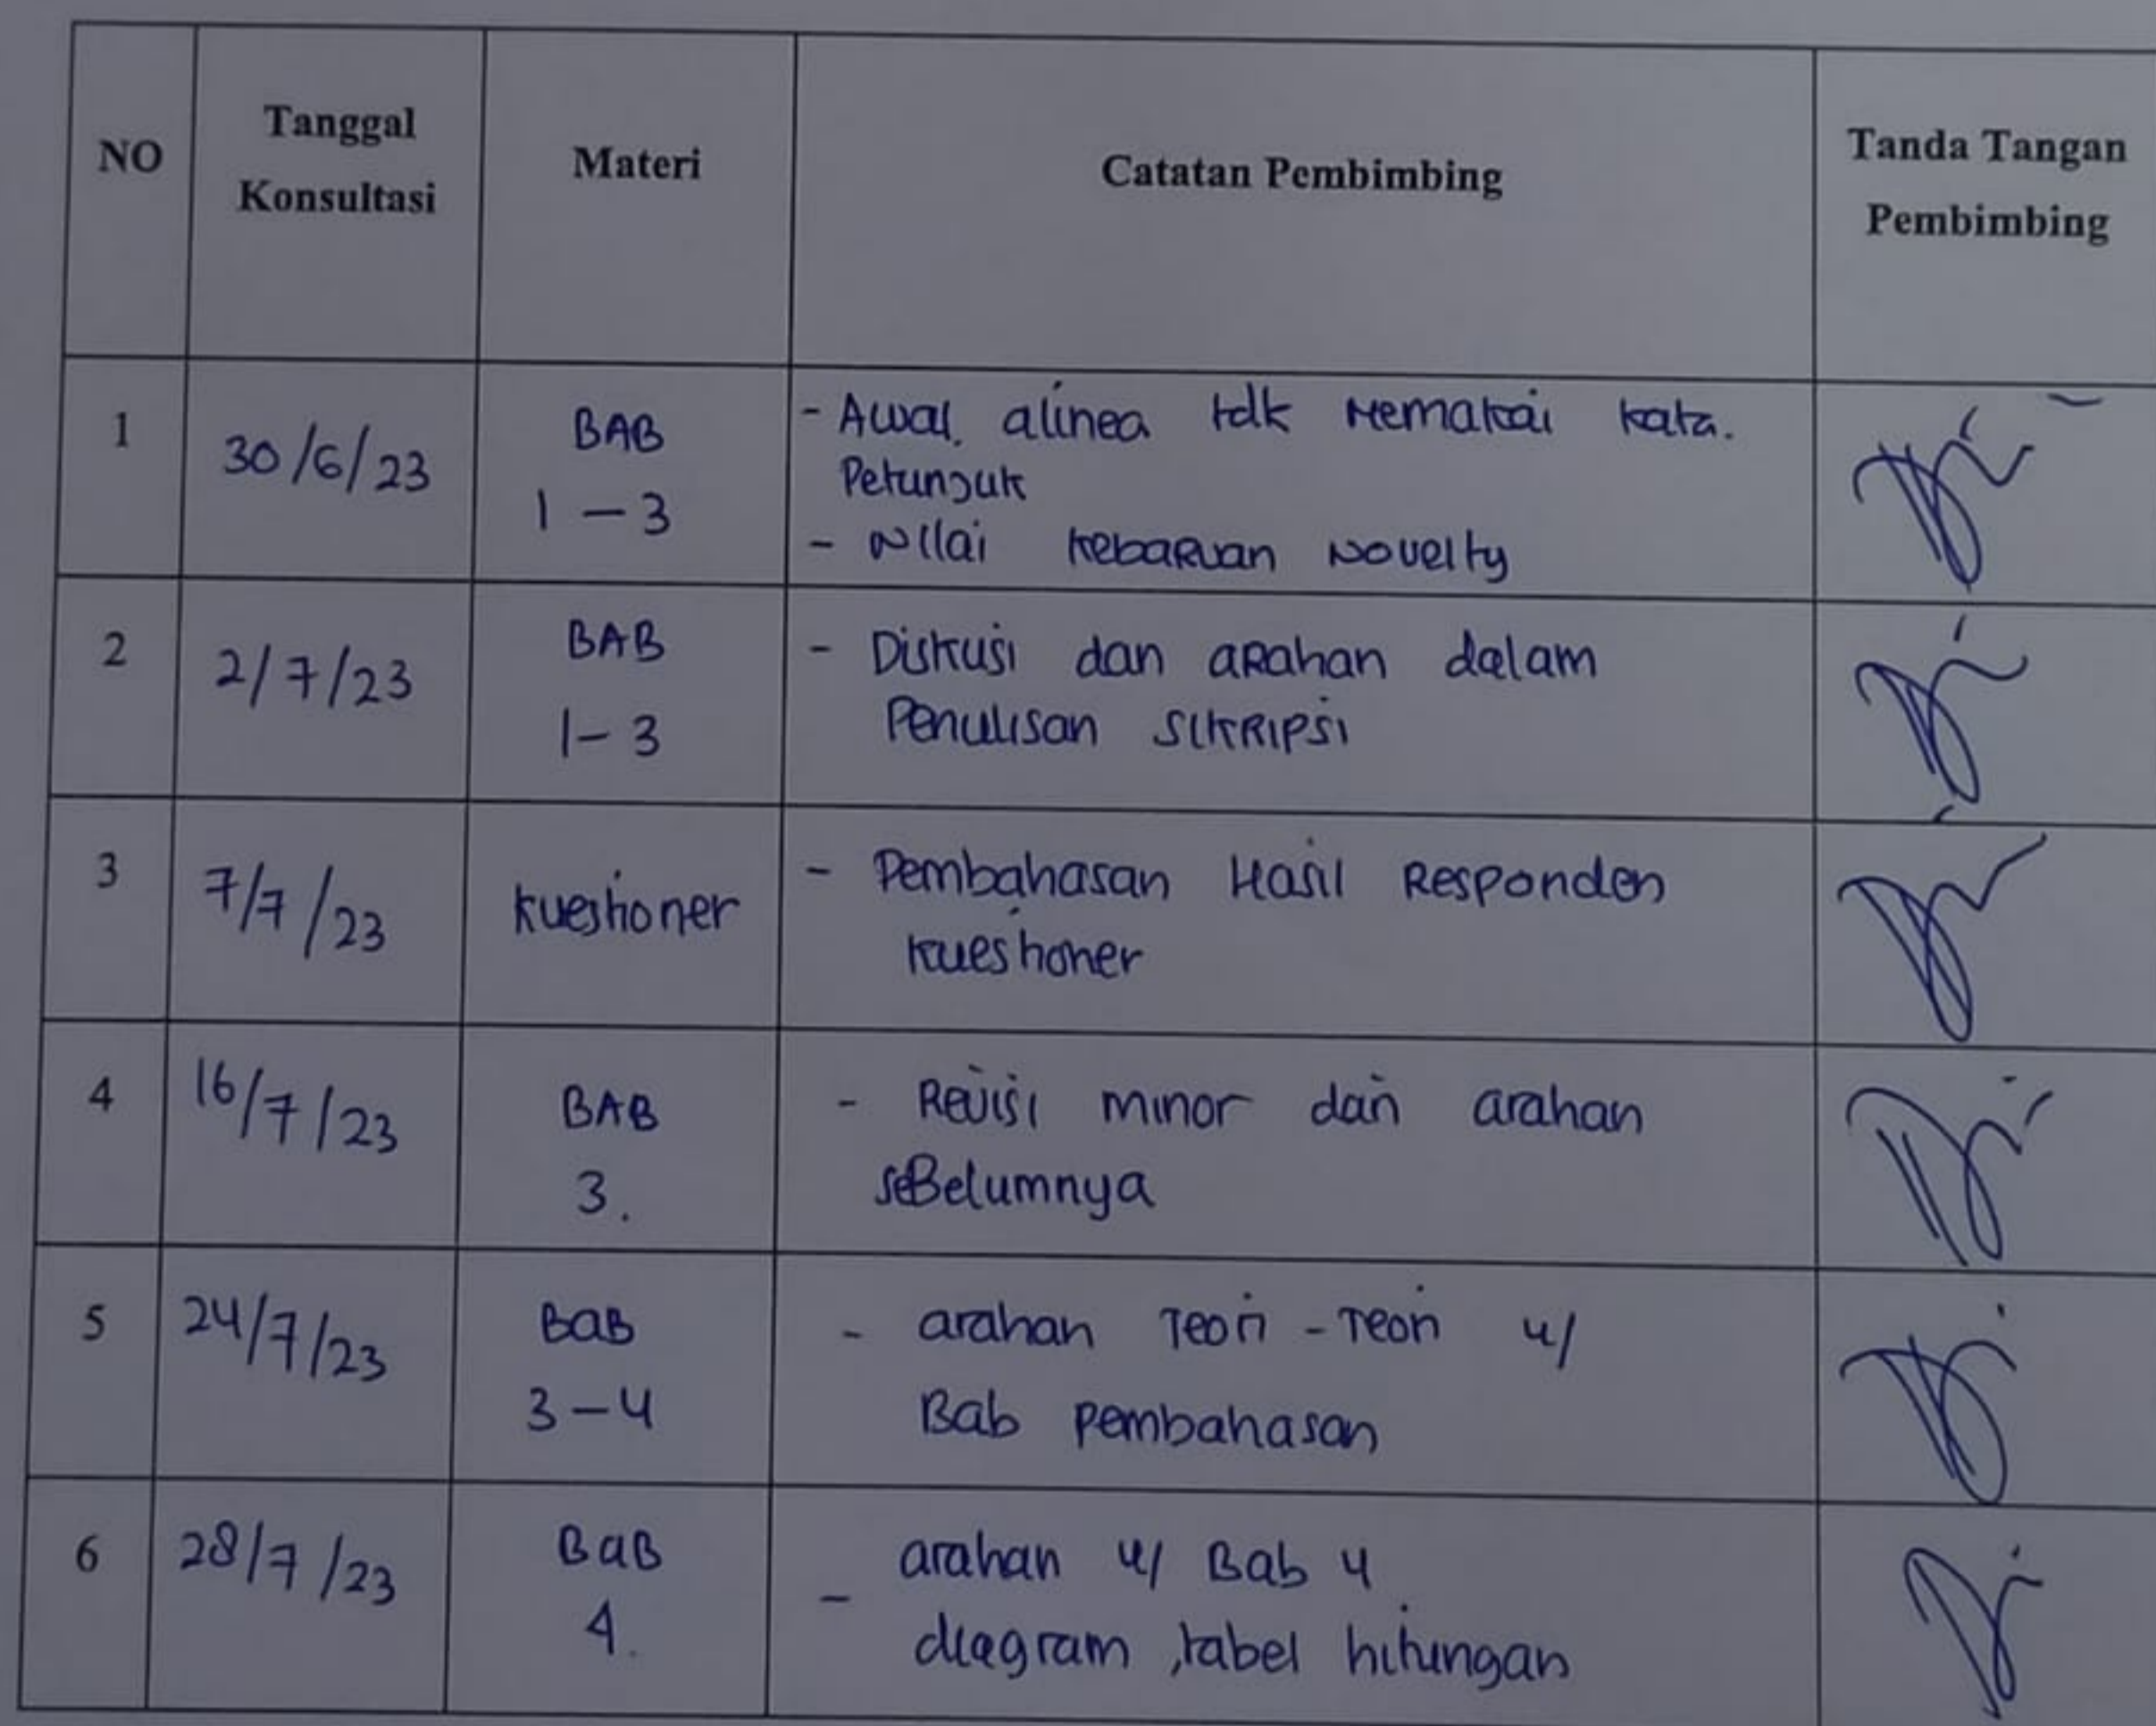 NO Tanggal Konsultasi Materi Catatan Pembimbing Tanda Tangan Pembimbing
1 30/6/23 BAB 1 – 3 - Awal alinea tdk Memakai kata.
Petunjuk
- Nilai kebaRuan Novelty
2 2/7/23 BAB 1 – 3 - Diskusi dan aRahan dalam
Penulisan SkRIPSi
3 7/7/23 kuestioner - Pembahasan Hasil Responden
kuestioner
4 16/7/23 BAB 3. - Revisi minor dan arahan
seBelumnya
5 24/7/23 BaB 3 – 4 - arahan Teori - Teori u/
Bab pembahasan
6 28/7/23 BaB 4. - arahan u/ Bab 4
diagram, tabel hitungan